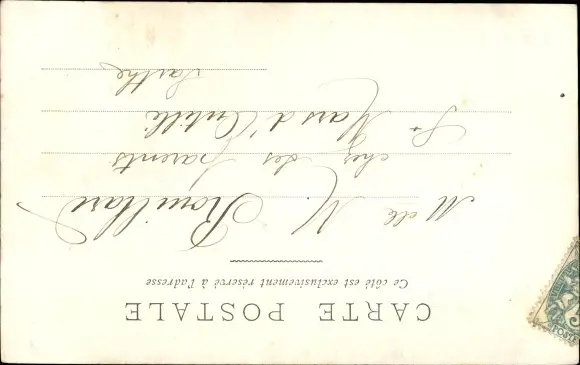 CARTE POSTALE
Ce côté est exclusivement réservé à l'adresse
Melle M. Rouillard
chez des parents
St Mars d'Outillé
Sarthe
POSTE